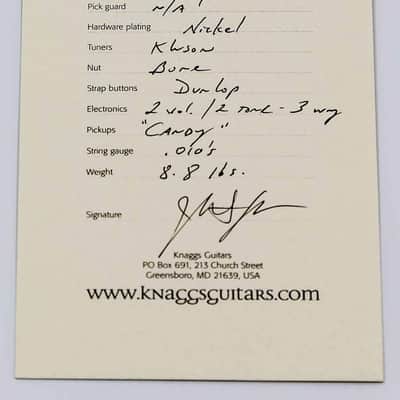 Pick guard N/A
Hardware plating Nickel
Tuners Kluson
Nut Bone
Strap buttons Dunlop
Electronics 2 vol. / 2 tone - 3 way
Pickups "CANDY"
String gauge .010's
Weight 8.8 lbs.
Signature
Knaggs Guitars
PO Box 691, 213 Church Street
Greensboro, MD 21639, USA
www.knaggsguitars.com